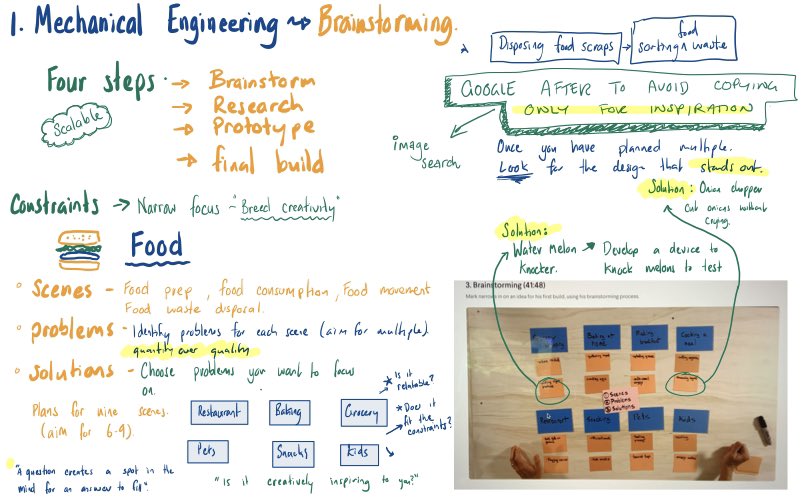 1. Mechanical Engineering → Brainstorming.
Four steps → Brainstorm
→ Research
→ Prototype
→ final build
Scalable
Constraints → Narrow focus - "Breed creativity"
Food
Scenes - Food prep, food consumption, Food movement
Food waste disposal.
Problems - Identify problems for each scene (aim for multiple)
quantity over quality
Solutions - Choose problems you want to focus
on.
Plans for nine scenes.
(aim for 6-9).
Restaurant
Baking
Grocery
Pets
Snacks
Kids
* Is it
relatable?
* Does it
fit the
constraints?
"A question creates a spot in the
mind for an answer to fill".
"Is it creatively inspiring to you?"
Disposing food scraps → food
sorting waste
GOOGLE AFTER TO AVOID COPYING
ONLY FOR INSPIRATION
image
search
Once you have planned multiple.
Look for the design that stands out.
Solution: Onion chopper
Cut onions without
crying.
Solution:
Water melon → Develop a device to
knocker. knock melons to test
3. Brainstorming (41:48)
Mark narrows in on an idea for his first build, using his brainstorming process.
Baking at
home
Making
breakfast
Cooking a
meal
① Scenes
② Problems
③ Solutions
Restaurant
Snacking
Pets
Kids